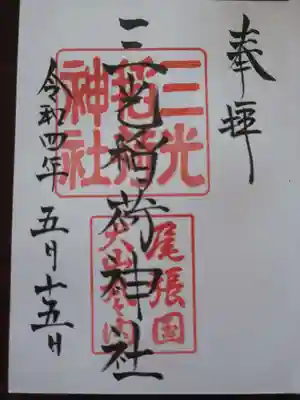 奉拝
三光稲荷神社
令和四年 五月十五日
三光
稲荷
神社
尾張国
犬山城内